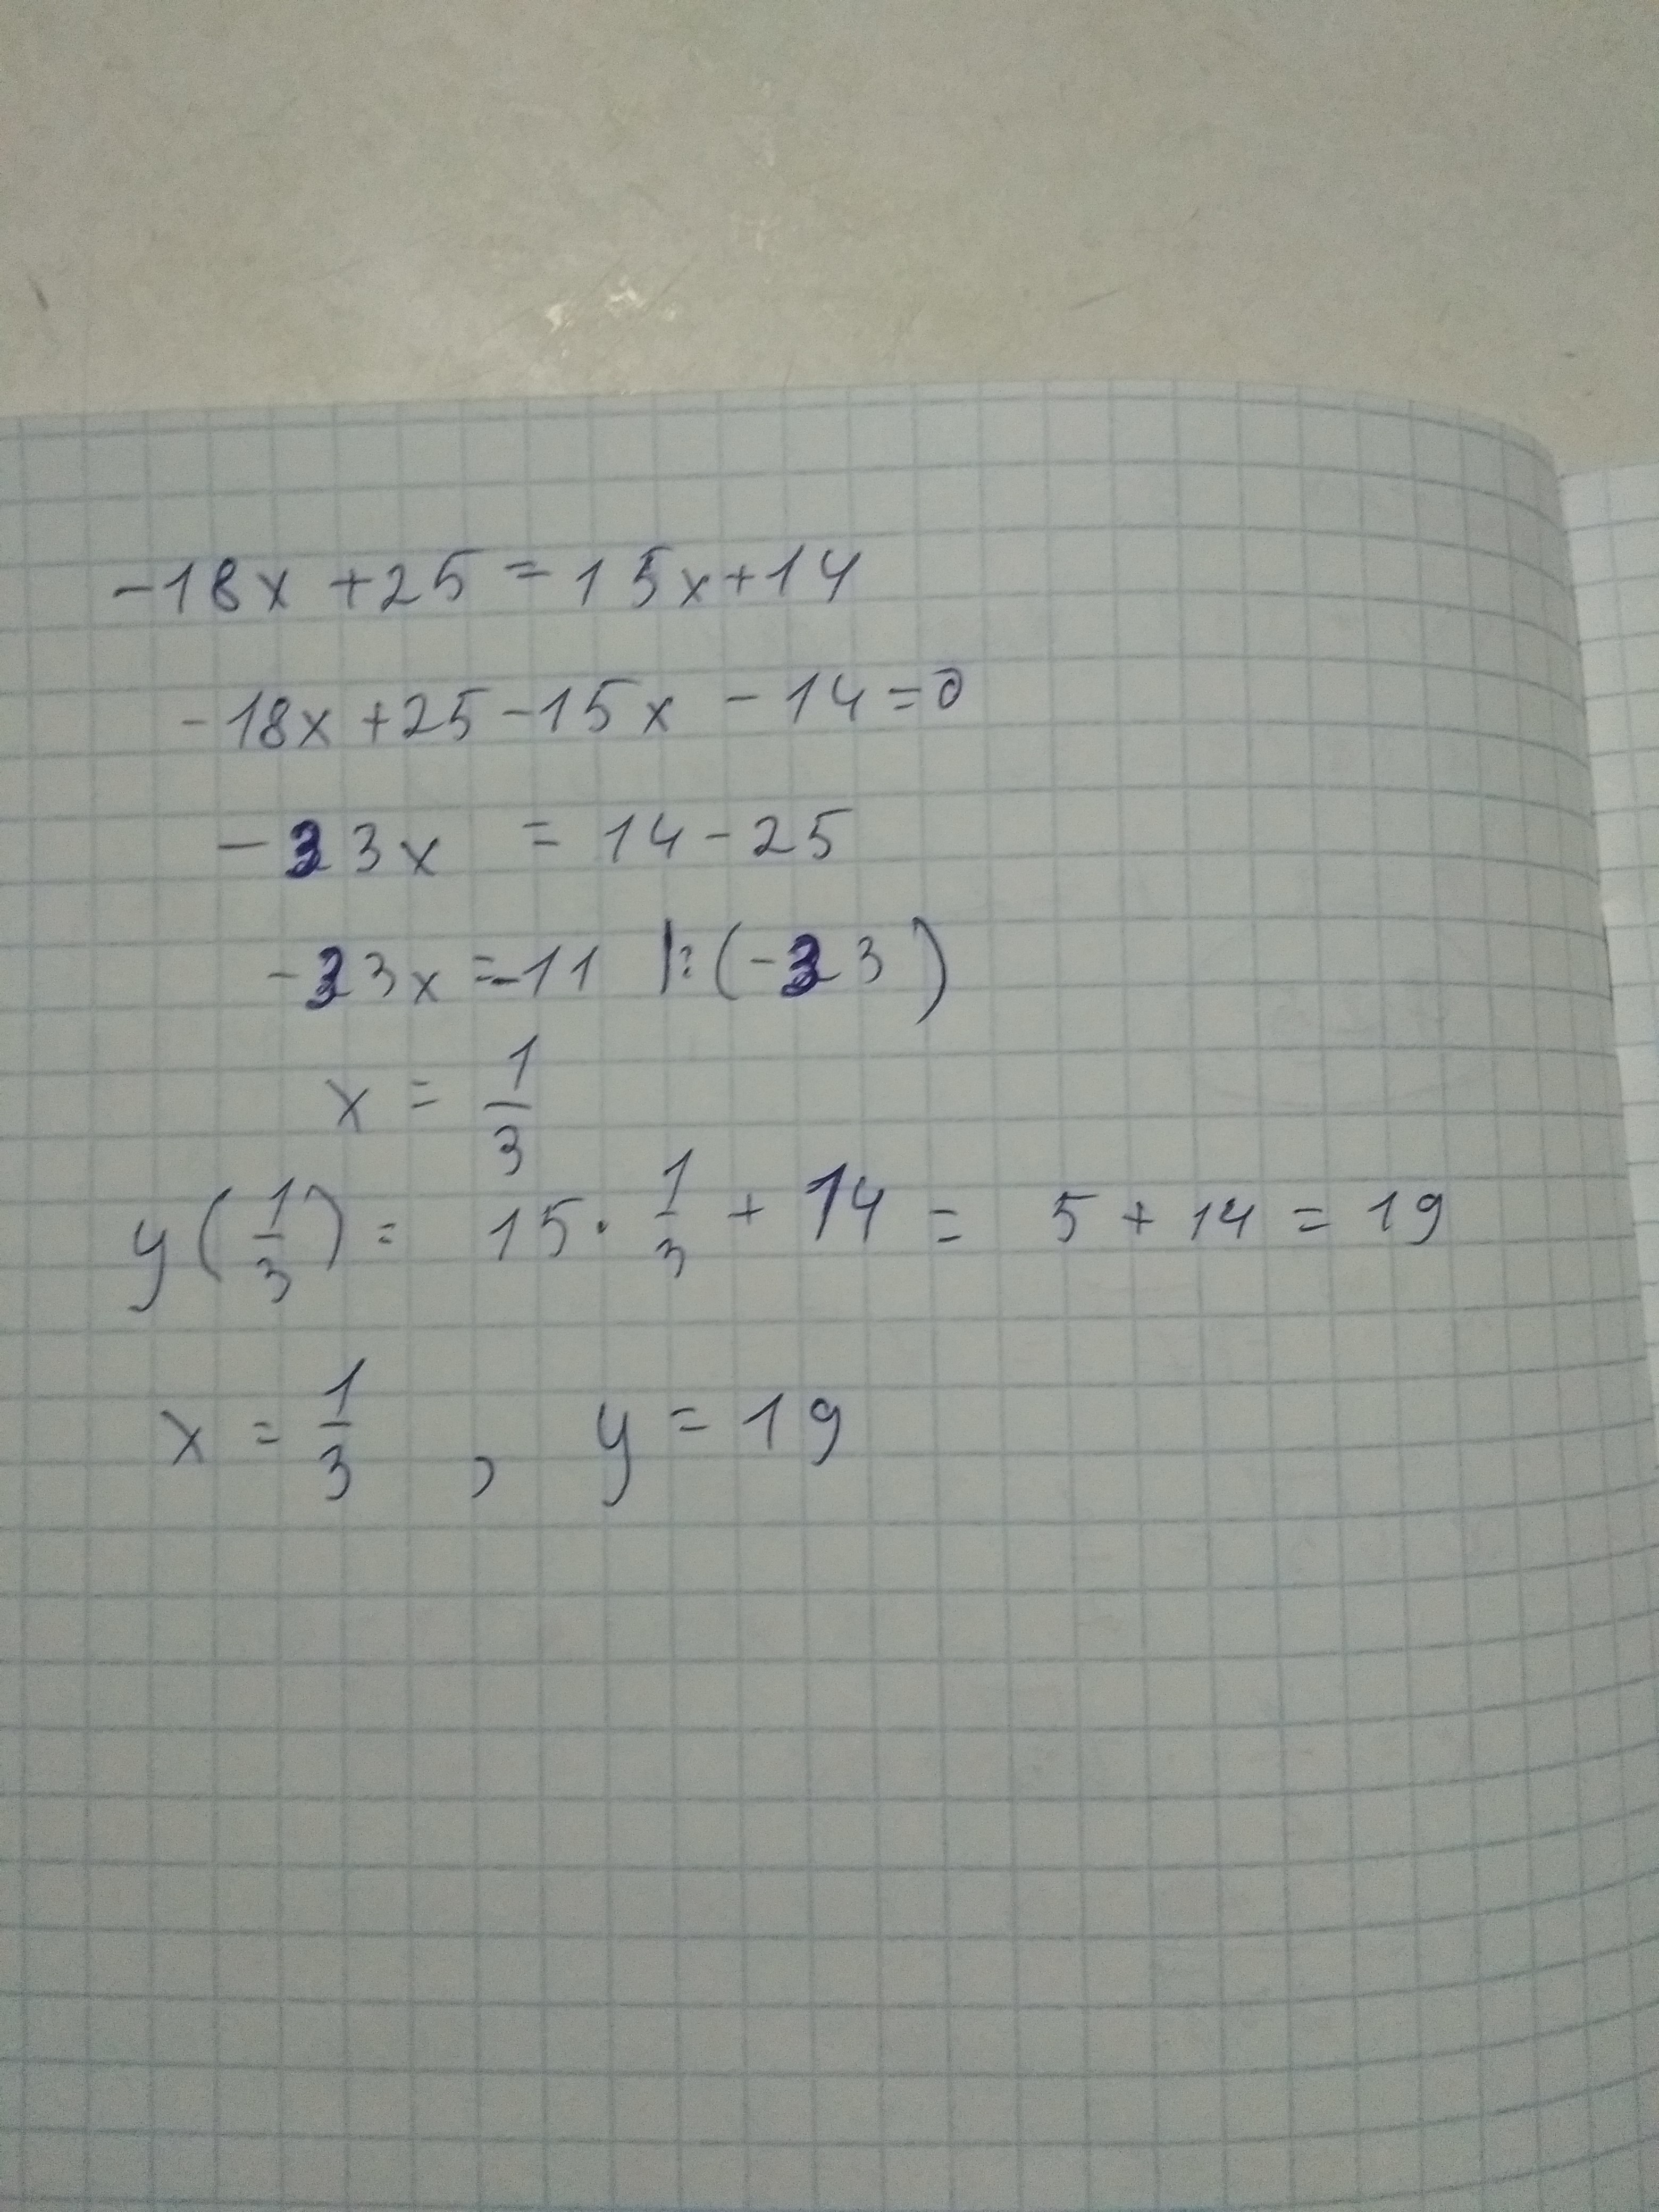 -18x + 25 = 15x + 14
-18x + 25 - 15x - 14 = 0
-33x = 14 - 25
-33x = -11 |:(-33)
x = 1/3
y(1/3) = 15 · 1/3 + 14 = 5 + 14 = 19
x = 1/3 , y = 19